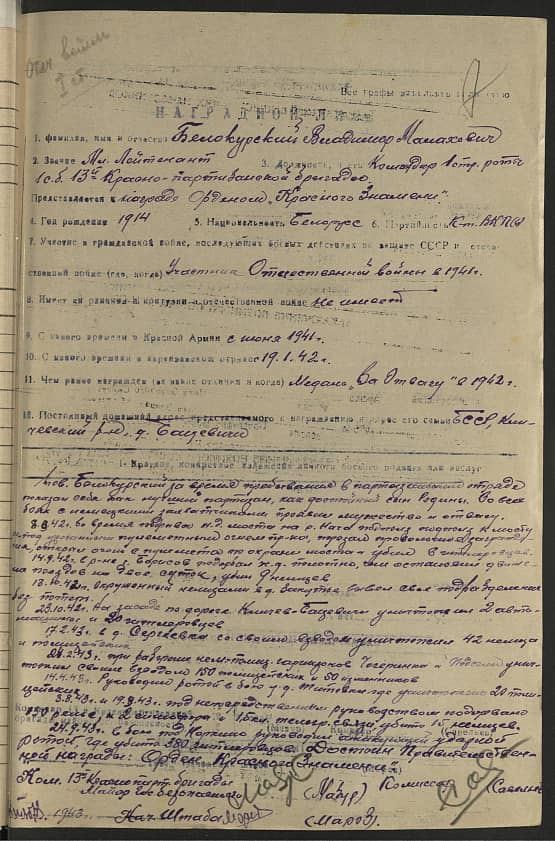 Все графы заполнять
НАГРАДНОЙ ЛИ
1. Фамилия, имя и отчество Белокурский Владимир Малахович
2. Звание Мл. Лейтенант 3. Должность, часть Командир 1 стр. роты
1 с.б. 13й Красно-партизанской бригады
Представляется к награде Орденом „Красного Знамени".
4. Год рождения 1914 5. Национальность Белорус 6. Партийность К-т ВКП(б)
7. Участие в гражданской войне, последующих боевых действиях по защите СССР и отече-
ственной войне (где, когда) Участник Отечественной войны в 1941 г.
8. Имеет ли ранения и контузии в отечественной войне не имеет
9. С какого времени в Красной Армии с июня 1941 г.
10. С какого времени в партизанском отряде 19.1.42 г.
11. Чем ранее награжден (за какие отличия и когда) Медаль „За Отвагу" в 1942 г.
12. Постоянный домашний адрес представляемого к награждению и адрес его семьи БССР, Кли-
чевский р-н, д. Бацевичи
1. Краткое, конкретное изложение личного боевого подвига или заслуг
Тов. Белокурский за время пребывания в партизанском отряде
показал себя как лучший партизан, как достойный сын Родины. Во всех
боях с немецкими захватчиками проявил мужество и отвагу.
8.9.42. во время подрыва ж.д. моста на р. Нача подполз к мосту
под пулеметным огнем пр-ка, прорезал проволочное заграждение,
открыл огонь с пулемета по охране моста и убил
14.9.42. в р-не г. Борисов подорвал ж.д. полотно, чем остановил движе-
ние поездов на двое суток, убил 9 немцев
18.10.42 г. окруженный немцами в д. Закупленье вывел свое подразделение
без потерь.
23.10.42. На засаде по дороге Кличев-Бацевичи уничтожил 2 авто-
машины и 20 гитлеровцев
17.2.43. в д. Сергеевка со своим взводом уничтожил 42 немца
и полицейских
28.2.43. при разгроме нем-полиц. гарнизонов Чечерники и уни-
тожил своим взводом 150 полицейских и 50 изменников
14.4.43 г. Руководил ротой в бою у д. Житовка где уничтожено 28 поли-
цейских.
3.8.43 и 19.9.43. под непосредственным руководством подорвано
150 рельс, и 2 15 км. телегр. связи, убито 15 немцев.
24.9.43. в бою под руководил ударной
ротой, где убита 380 гитлеровцев. Достоин Правительствен-
ной награды: Орден „Красного Знамени".
Ком. 13й Краснопарт. бригады
Майор Госбезопасности (Мазур) Комиссар
1943 г. Нач. Штаба (Мороз)